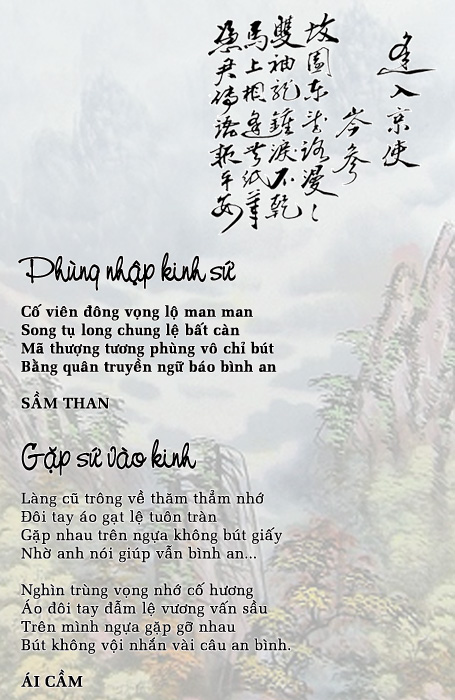 逢入京使
岑參
故園东望路漫々
雙袖龍鍾淚不乾
馬上相逢无紙筆
憑君傳語報平安
Phùng nhập kinh sứ
Cố viên đông vọng lộ man man
Song tụ long chung lệ bất càn
Mã thượng tương phùng vô chỉ bút
Bằng quân truyền ngữ báo bình an
SẦM THAN
Gặp sứ vào kinh
Làng cũ trông về thăm thẳm nhớ
Đôi tay áo gạt lệ tuôn tràn
Gặp nhau trên ngựa không bút giấy
Nhờ anh nói giúp vẫn bình an...
Nghìn trùng vọng nhớ cố hương
Áo đôi tay đẫm lệ vương vấn sầu
Trên mình ngựa gặp gỡ nhau
Bút không vội nhắn vài câu an bình.
ÁI CẦM